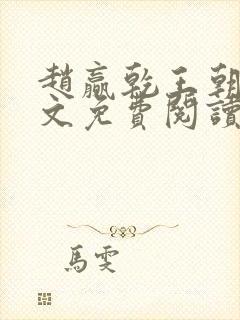 趙贏乾王朝
文免費閱讀
馬雯